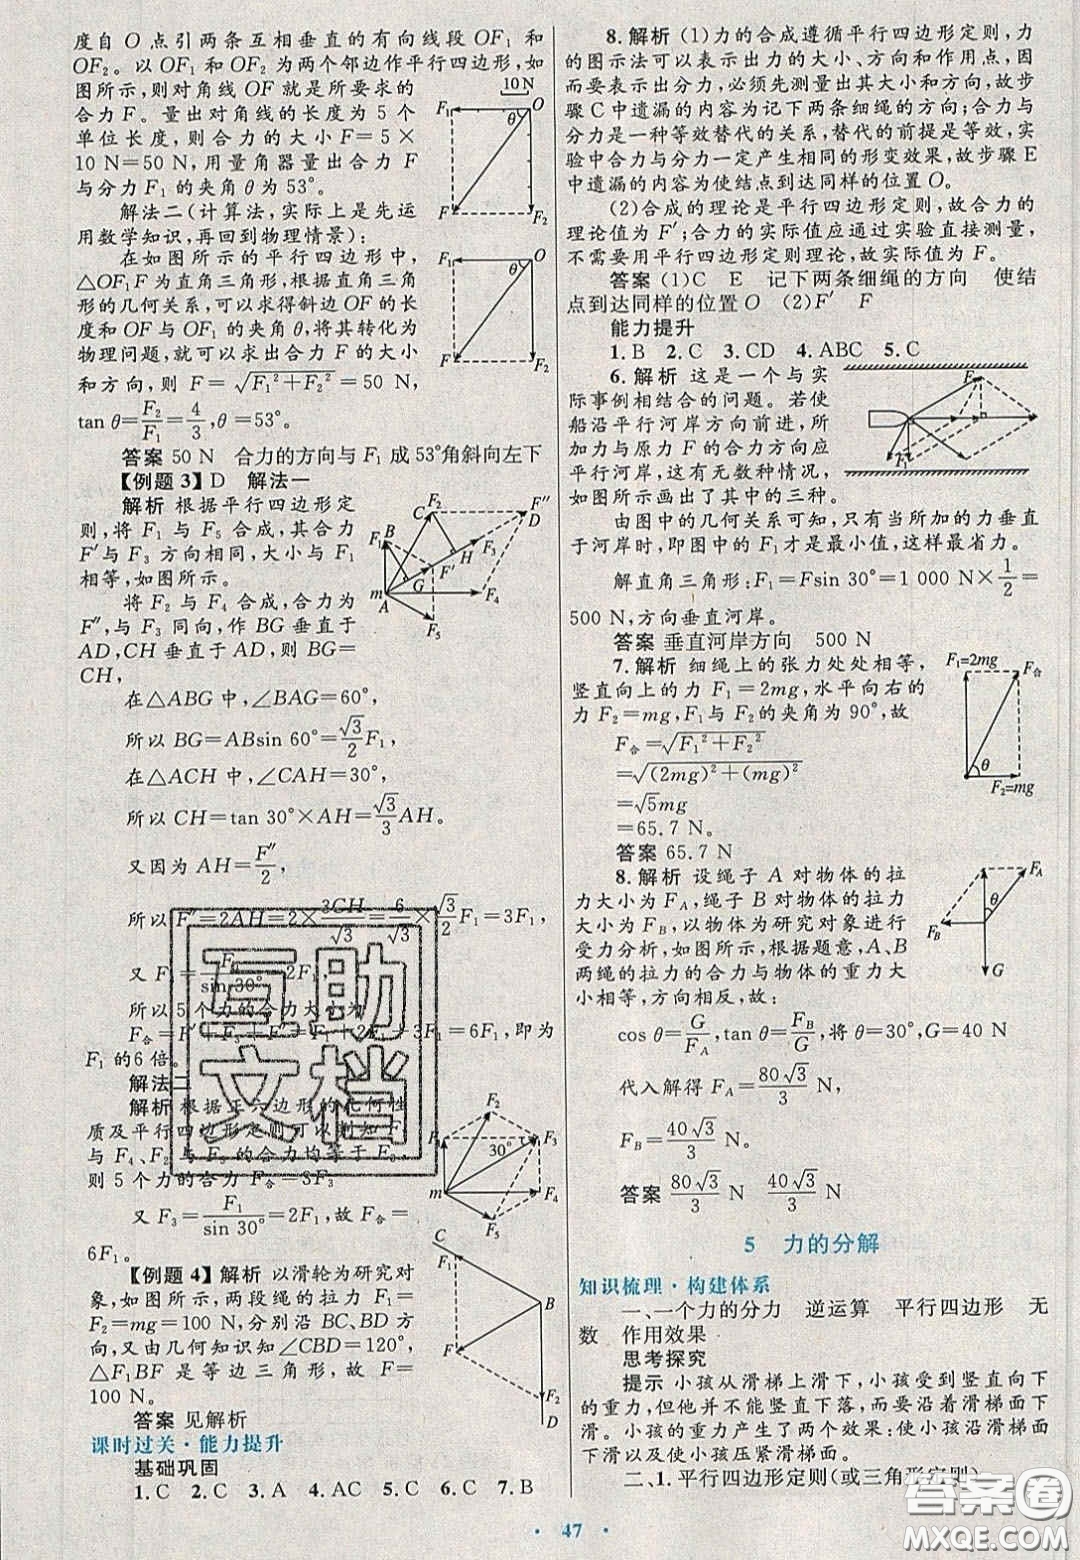 度自 O 点引两条互相垂直的有向线段 OF₁ 和
OF₂。以 OF₁ 和 OF₂ 为两个邻边作平行四边形,如
图所示,则对角线 OF 就是所要求的
合力 F。量出对角线的长度为 5 个
单位长度,则合力的大小 F=5×
10 N=50 N,用量角器量出合力 F
与分力 F₁ 的夹角 θ 为 53°。
解法二(计算法,实际上是先运
用数学知识,再回到物理情景):
在如图所示的平行四边形中,
△OF₁F 为直角三角形,根据直角三角
形的几何关系,可以求得斜边 OF 的长
度和 OF 与 OF₁ 的夹角 θ,将其转化为
物理问题,就可以求出合力 F 的大小
和方向,则 F=√(F₁²+F₂²)=50 N,
tan θ=F₂/F₁=4/3,θ=53°。
答案 50 N 合力的方向与 F₁ 成 53°角斜向左下
【例题 3】D 解法一
解析 根据平行四边形定
则,将 F₁ 与 F₅ 合成,其合力
F′与 F₃ 方向相同,大小与 F₁
相等,如图所示。
将 F₂ 与 F₄ 合成,合力为
F″,与 F₃ 同向,作 BG 垂直于
AD,CH 垂直于 AD,则 BG=
CH,
在△ABG 中,∠BAG=60°,
所以 BG=ABsin 60°=√3/2 F₁,
在△ACH 中,∠CAH=30°,
所以 CH=tan 30°×AH=√3/3 AH。
又因为 AH=F″/2,
所以 F″=2AH=2×3CH/√3=6/√3×√3/2 F₁=3F₁,
又 F₃=F₁/sin 30°=2F₁,
所以 5 个力的合力大小为
F合=F′+F₃+F″=F₁+2F₁+3F₁=6F₁,即为
F₁ 的6倍。
解法二
解析 根据正六边形的几何性
质及平行四边形定则可以则知 F₁
与 F₄、F₂ 与 F₅ 的合力均等于 F₃,
则 5 个力的合力 F合=3F₃
又 F₃=F₁/sin 30°=2F₁,故 F合=
6F₁。
【例题 4】解析 以滑轮为研究对
象,如图所示,两段绳的拉力 F₁=
F₂=mg=100 N,分别沿 BC、BD 方
向,又由几何知识知∠CBD=120°,
△F₁BF 是等边三角形,故 F=
100 N。
答案 见解析
课时过关·能力提升
基础巩固
1.C 2.C 3.A 4.AC 5.C 6.C 7.B
10 N
F₁ O θ F F₂
F₁ O θ F F₂
F₂ F″ C D F₁ B F₃ H F′ G m A F₄ F₅
F₂ F₁ F₃ 30° m F₄ F₅
C F₁ B F F₂ D
8.解析 (1)力的合成遵循平行四边形定则,力
的图示法可以表示出力的大小、方向和作用点,因
而要表示出分力,必须先测量出其大小和方向,故步
骤 C 中遗漏的内容为记下两条细绳的方向;合力与
分力是一种等效替代的关系,替代的前提是等效,实
验中合力与分力一定产生相同的形变效果,故步骤 E
中遗漏的内容为使结点到达同样的位置 O。
(2)合成的理论是平行四边形定则,故合力的
理论值为 F′;合力的实际值应通过实验直接测量,
不需要用平行四边形定则理论,故实际值为 F。
答案 (1)C E 记下两条细绳的方向 使结
点到达同样的位置 O (2)F′ F
能力提升
1.B 2.C 3.CD 4.ABC 5.C
6.解析 这是一个与实
际事例相结合的问题。若使
船沿平行河岸方向前进,所
加力与原力 F 的合力方向应
平行河岸,这里有无数种情况。
如图所示画出了其中的三种。
由图中的几何关系可知,只有当所加的力垂直
于河岸时,即图中的 F₁才是最小值,这样最省力。
解直角三角形:F₁=Fsin 30°=1 000 N×1/2=
500 N,方向垂直河岸。
答案 垂直河岸方向 500 N
7.解析 细绳上的张力处处相等,
竖直向上的力 F₁=2mg,水平向右的
力 F₂=mg,F₁与 F₂的夹角为 90°,故
F合=√(F₁²+F₂²)
=√((2mg)²+(mg)²
=√5mg
=65.7 N。
答案 65.7 N
8.解析 设绳子 A 对物体的拉
力大小为 F_A,绳子 B 对物体的拉力
大小为 F_B,以物体为研究对象进行
受力分析,如图所示,根据题意,A、B
两绳的拉力的合力与物体的重力大
小相等,方向相反,故:
cos θ=G/F_A,tan θ=F_B/G,将 θ=30°,G=40 N
代入解得 F_A=80√3/3 N
F_B=40√3/3 N
答案 80√3/3 N 40√3/3 N
5 力的分解
知识梳理·构建体系
一、一个力的分力 逆运算 平行四边形 无
数 作用效果
思考探究
提示 小孩从滑梯上滑下,小孩受到竖直向下
的重力,但是却没有竖直下落,而是沿着滑梯面下
滑。小孩的重力产生了两个效果:使小孩沿滑梯面
下滑以及使小孩压紧滑梯面。
二、1.平行四边形定则(或三角形定则)
F F₁
F₁=2mg F合 θ F₂=mg
F_A θ F_B G
互助
文档
答案圈
MXQE.COM
47